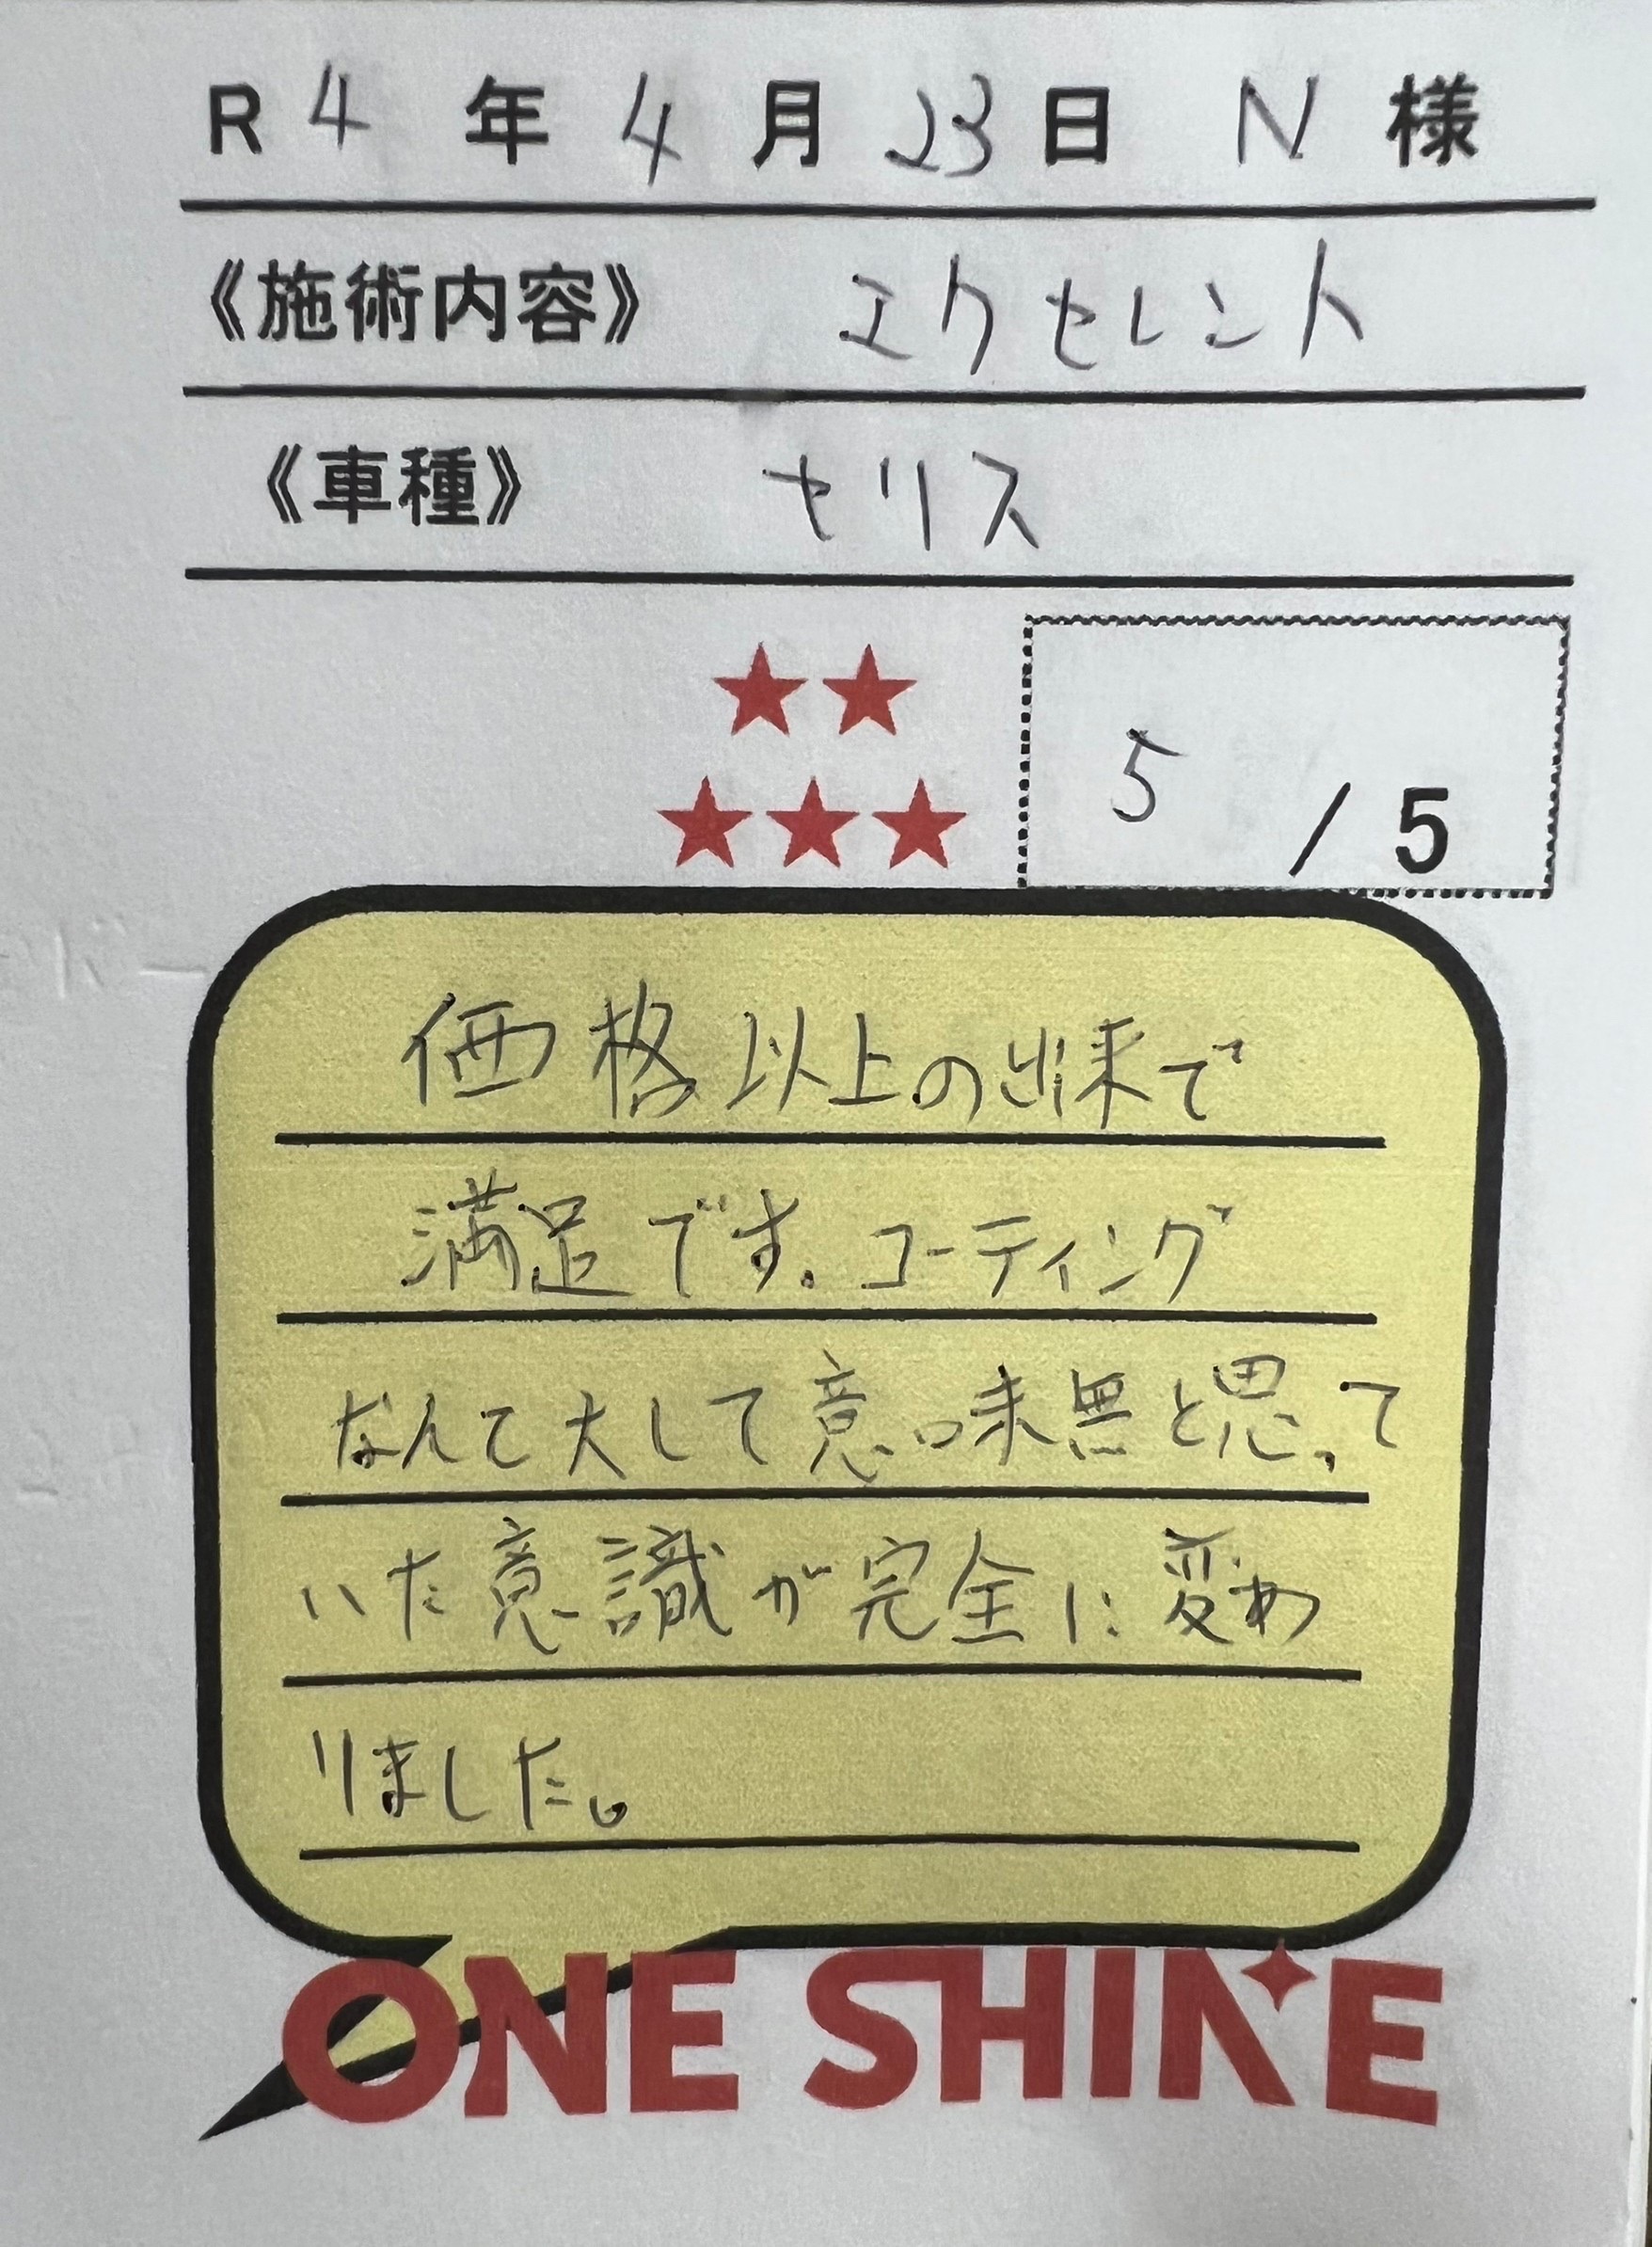 R 4 年 4 月 23 日 N 様
《施術内容》 エクセレント
《車種》 セリス
5 / 5
価格以上の出来で
満足です。コーティング
なんて大して意味無と思って
いた意識が完全に変わ
りました。
ONE SHINE